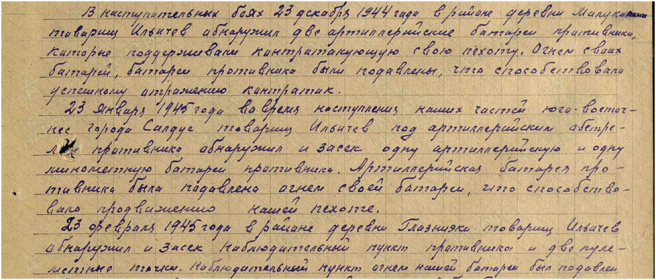 В наступательных боях 23 декабря 1944 года в районе деревни
товарищ Ильичев обнаружил две артиллерийские батареи противника,
которые поддерживали контратакующую свою пехоту. Огнем своих
батарей, батареи противника были подавлены, что способствовало
успешному отражению контратак.
23 января 1945 года во время наступления наших частей юго-восточ-
нее города Салдус товарищ Ильичев под артиллерийским обстре-
лом противника обнаружил и засек одну артиллерийскую и одну
минометную батареи противника. Артиллерийская батарея про-
тивника была подавлена огнем своей батареи, что способство-
вало продвижению нашей пехоте.
23 февраля 1945 года в районе деревни Глазнияки товарищ Ильичев
обнаружил и засек наблюдательный пункт противника и две пуле-
метные точки. Наблюдательный пункт огнем нашей батареи был подавлен